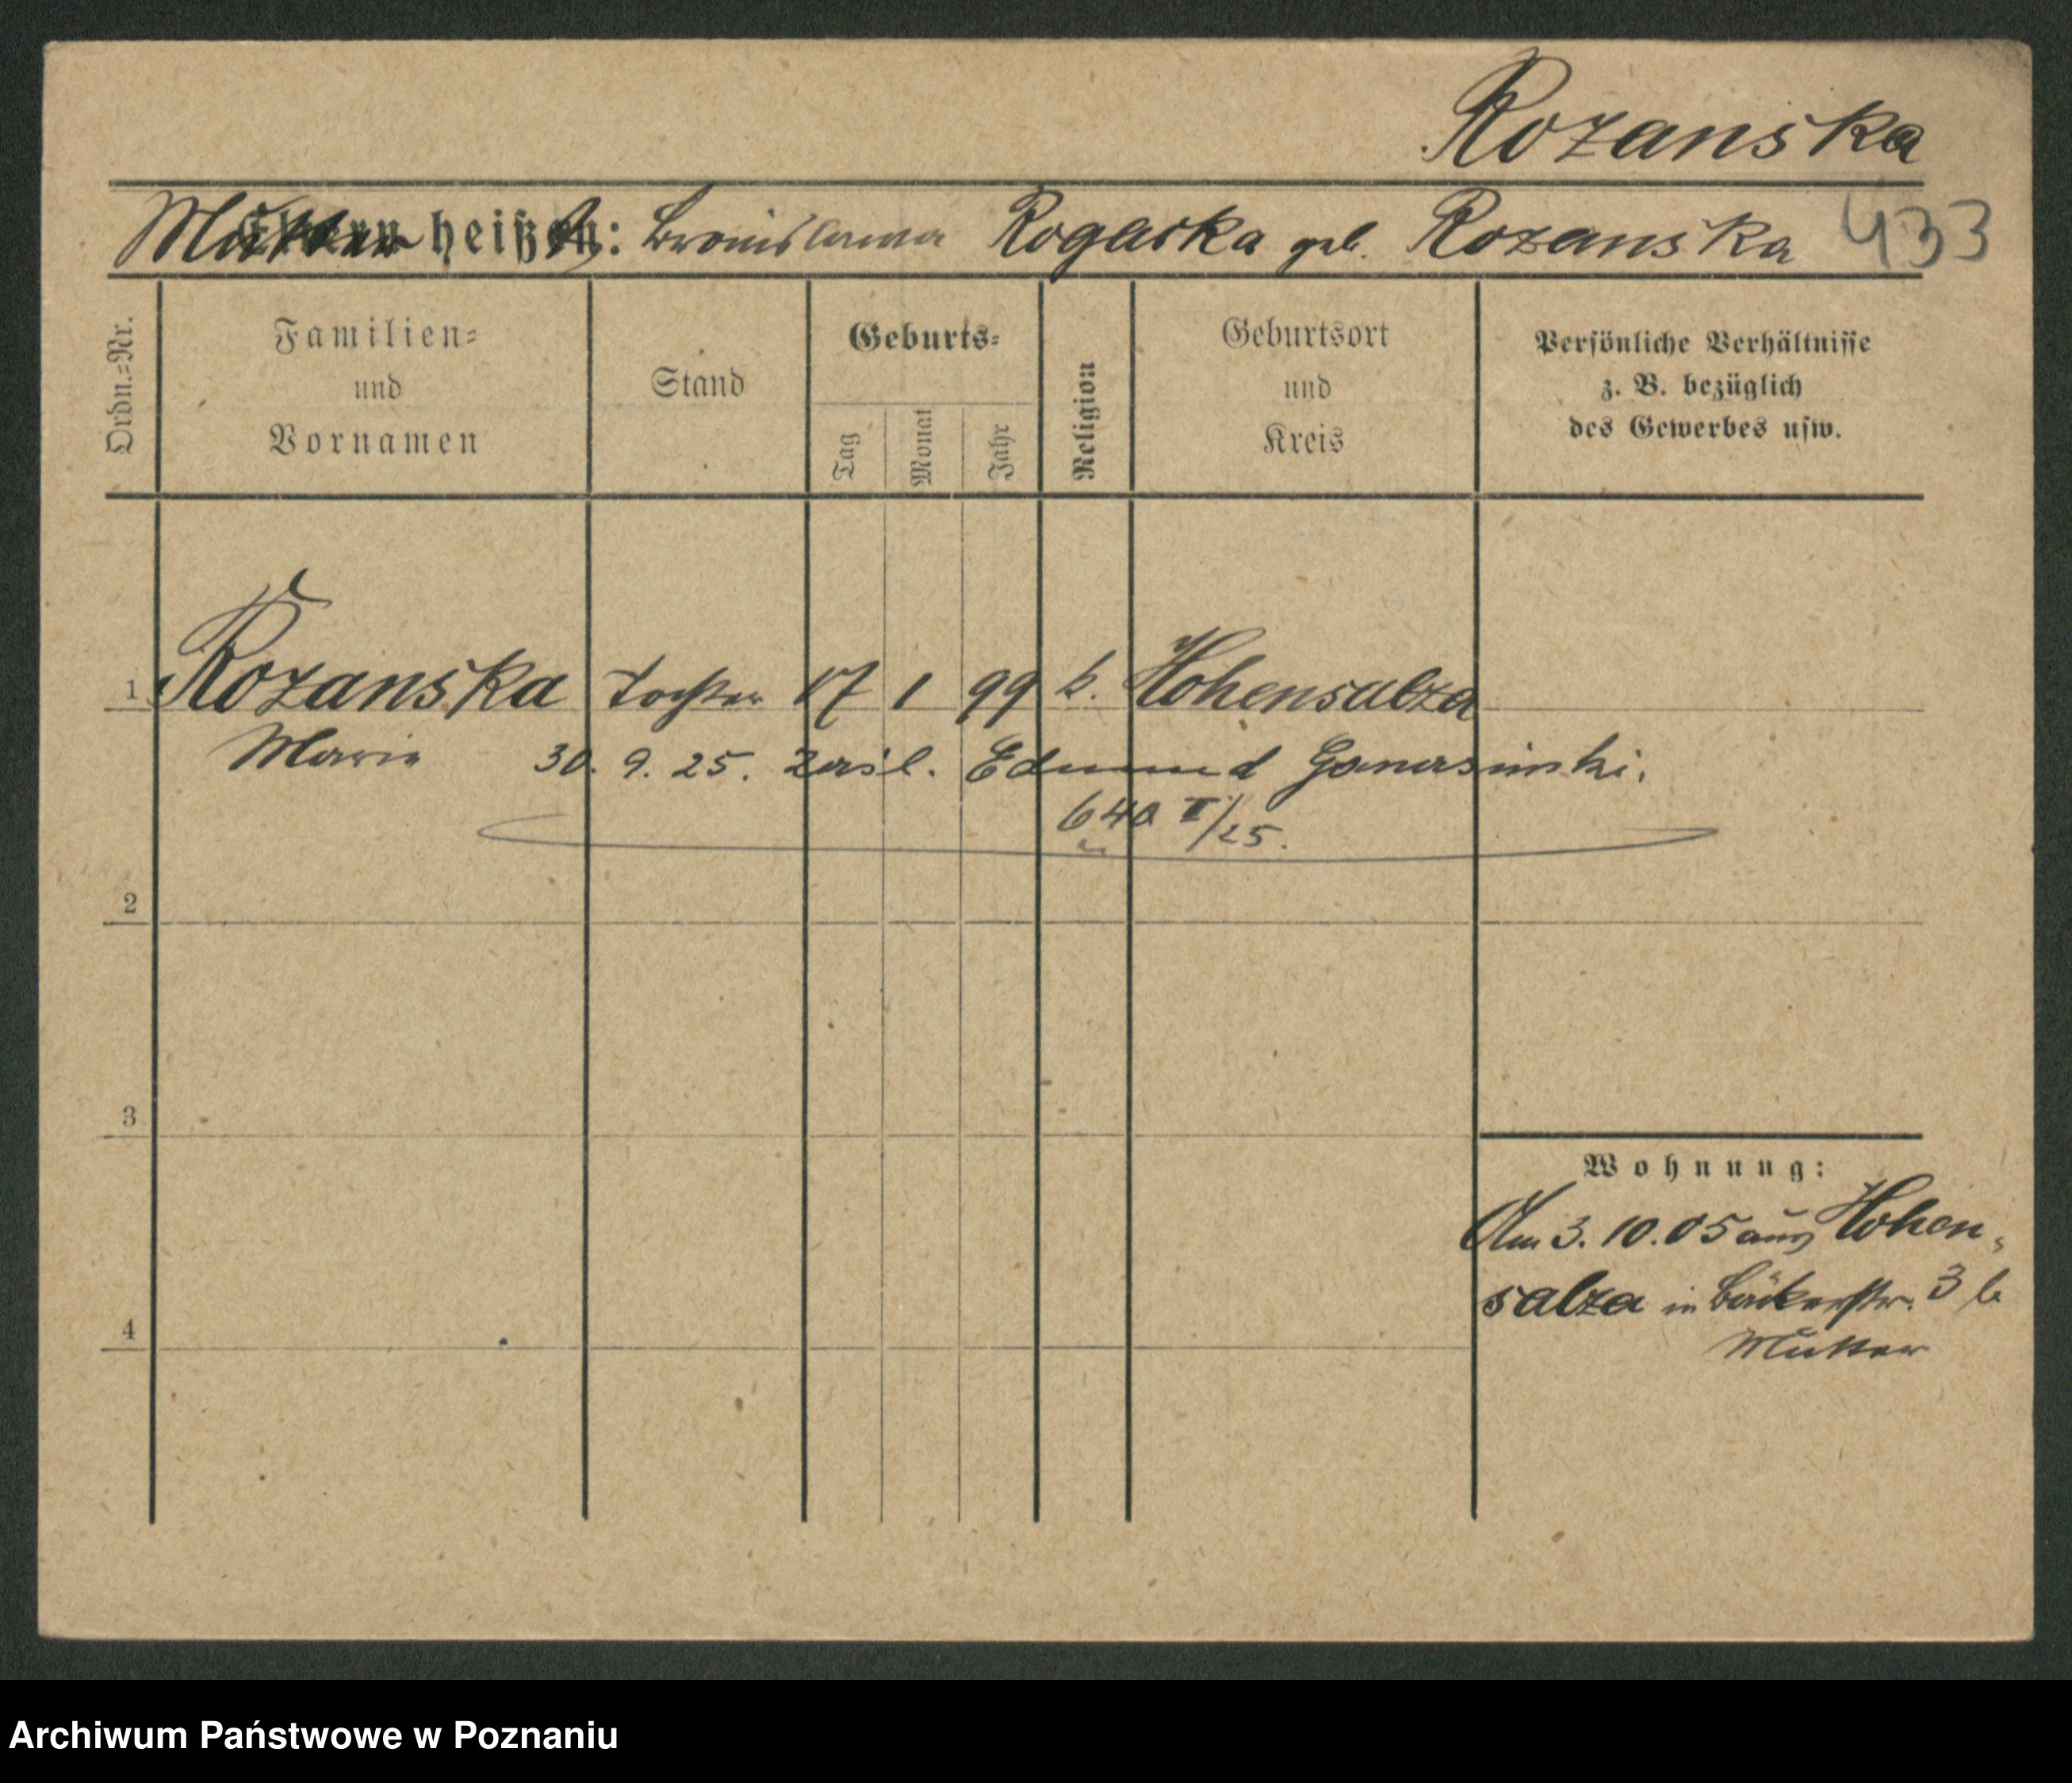 Rozanska
Mutter heißt: Bronislawa Rogacka geb. Rozanska 433
Ordn.=Nr.
Familien=
und
Vornamen
Stand
Geburts=
Tag
Monat
Jahr
Religion
Geburtsort
und
Kreis
Persönliche Verhältnisse
z. B. bezüglich
des Gewerbes usw.
1 Rozanska Tochter 17 1 99 k. Hohensalza
Marie 30. 9. 25. Edmund
640 II/25.
2
3
Wohnung:
Am 3. 10. 05 aus Hohen-
salza in Bäckerstr. 3 b
Mutter
4
Archiwum Państwowe w Poznaniu